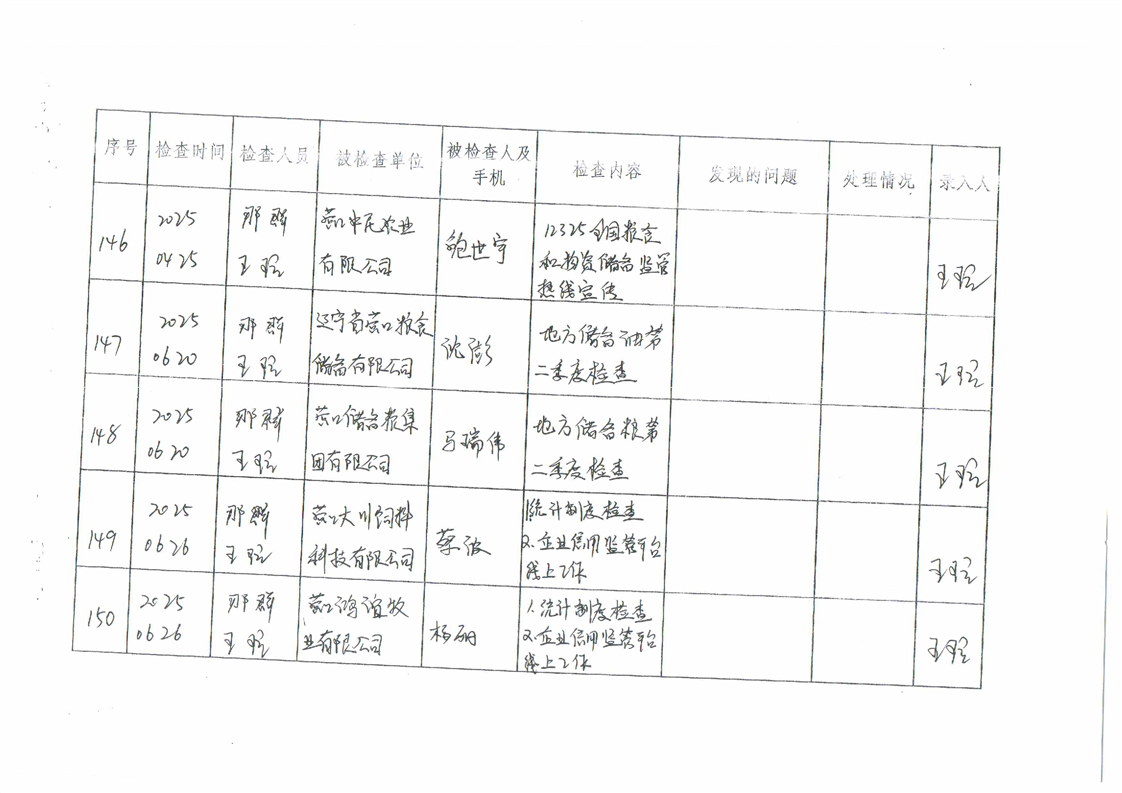 序号 检查时间 检查人员 被检查单位 被检查人及手机 检查内容 发现的问题 处理情况 录入人
146
2025
0425
那辉
王
营口中民农业
有限公司
鲍世宇
12325全国粮食
和物资储备监管
热线宣传
王
147
2025
0620
那辉
王
辽宁省营口粮食
储备有限公司
沈澎
地方储备油第
二季度检查
王
148
2025
0620
那辉
王
营口储备粮集
团有限公司
马瑞伟
地方储备粮第
二季度检查
王
149
2025
0626
那辉
王
营口大川饲料
科技有限公司
蔡波
1.统计制度检查
2.企业信用监管平台
线上工作
王
150
2025
0626
那辉
王
营口鸿谊牧
业有限公司
杨丽
1.统计制度检查
2.企业信用监管平台
线上工作
王